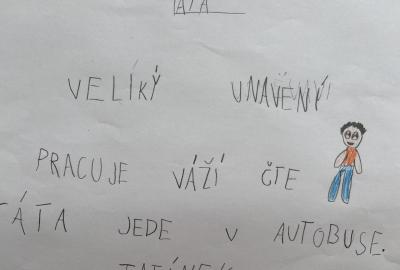 TÁTA
VELIKÝ UNAVENÝ
PRACUJE VÁŽÍ ČTE
TÁTA JEDE V AUTOBUSE.